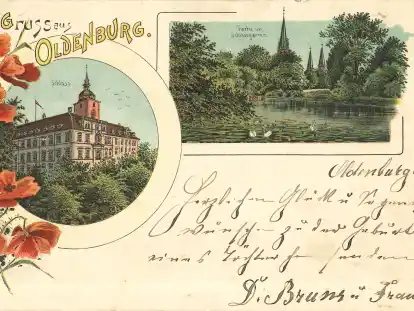 Gruss aus
OLDENBURG.
Schloss
Partie im
Schlossgarten.
Oldenburg
Herzlichen Glück u Segens
wünsche zu der Geburt
eines Töchterchen senden
D. Bruns u Frau